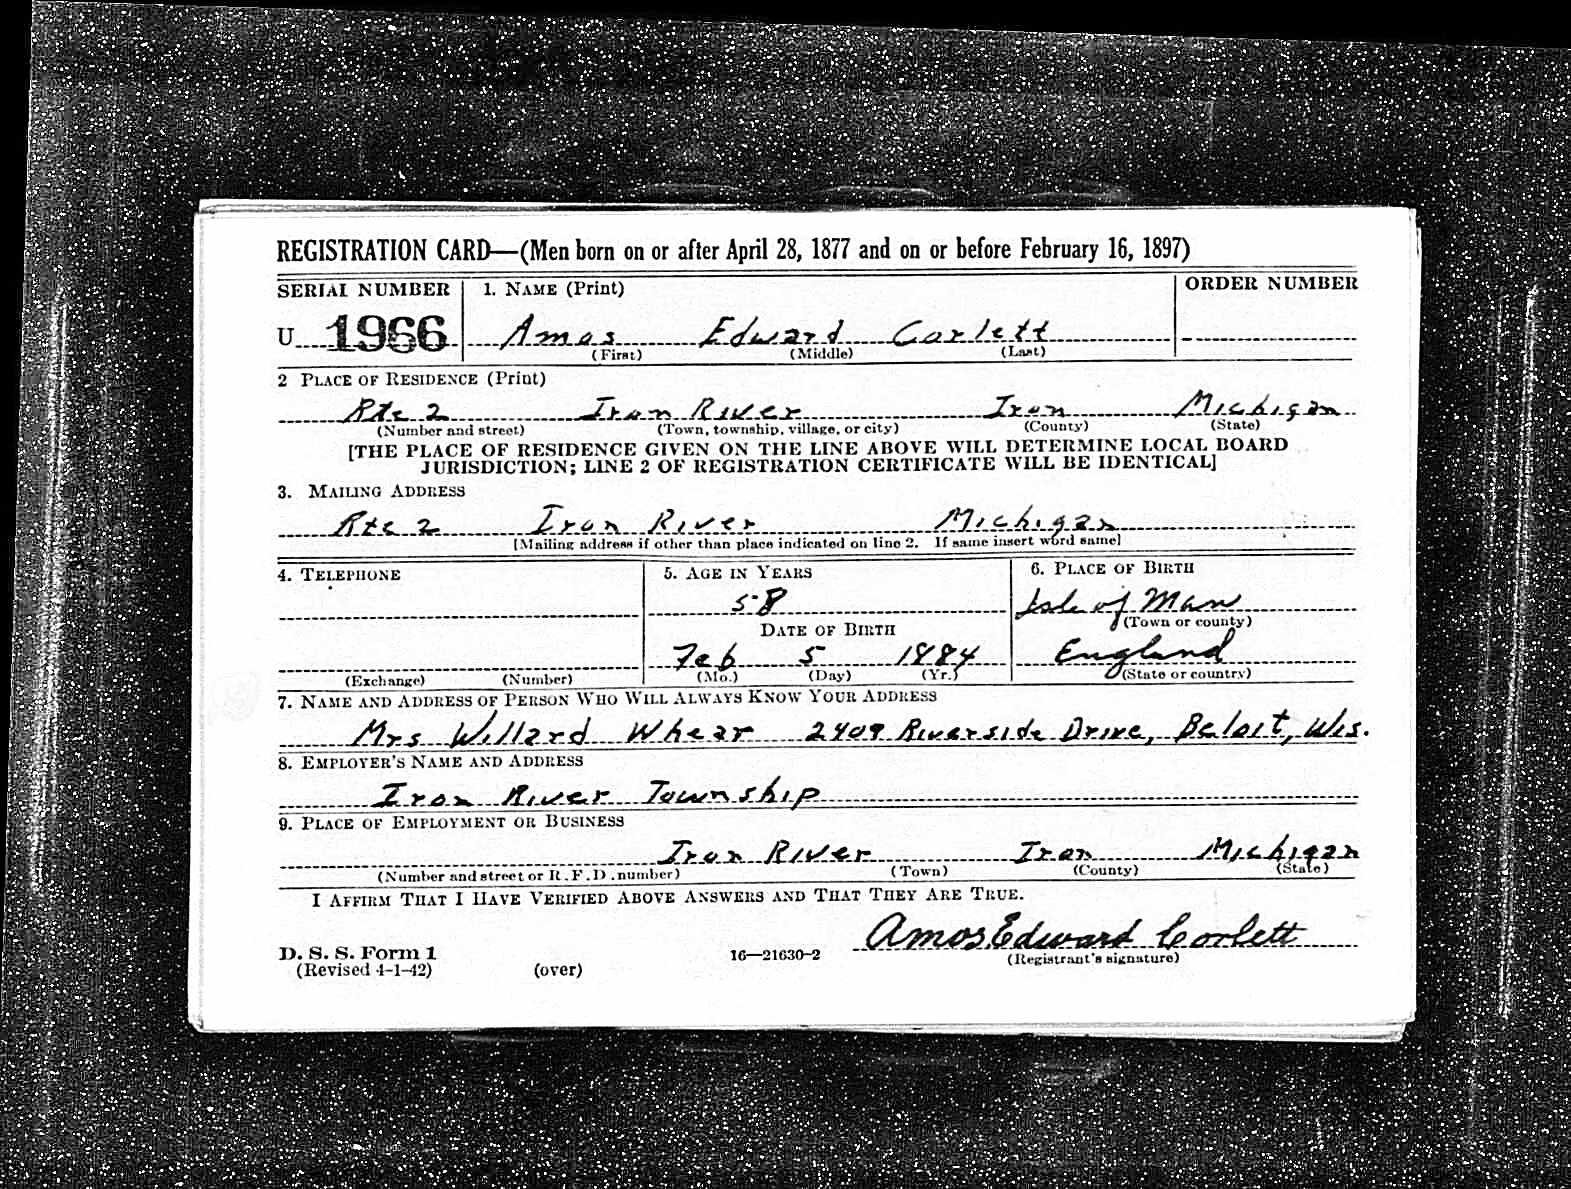 REGISTRATION CARD—(Men born on or after April 28, 1877 and on or before February 16, 1897)
SERIAL NUMBER 1. NAME (Print) ORDER NUMBER
U 1966 Amos Edward Corlett
(First) (Middle) (Last)
2 PLACE OF RESIDENCE (Print)
Rte 2 Iron River Iron Michigan
(Number and street) (Town, township, village, or city) (County) (State)
[THE PLACE OF RESIDENCE GIVEN ON THE LINE ABOVE WILL DETERMINE LOCAL BOARD
JURISDICTION; LINE 2 OF REGISTRATION CERTIFICATE WILL BE IDENTICAL]
3. MAILING ADDRESS
Rte 2 Iron River Michigan
[Mailing address if other than place indicated on line 2. If same insert word same]
4. TELEPHONE 5. AGE IN YEARS 6. PLACE OF BIRTH
58 Isle of Man
DATE OF BIRTH (Town or county)
Feb 5 1884 England
(Exchange) (Number) (Mo.) (Day) (Yr.) (State or country)
7. NAME AND ADDRESS OF PERSON WHO WILL ALWAYS KNOW YOUR ADDRESS
Mrs Willard Whear 2409 Riverside Drive, Beloit, Wis.
8. EMPLOYER'S NAME AND ADDRESS
Iron River Township
9. PLACE OF EMPLOYMENT OR BUSINESS
Iron River Iron Michigan
(Number and street or R.F.D. number) (Town) (County) (State)
I AFFIRM THAT I HAVE VERIFIED ABOVE ANSWERS AND THAT THEY ARE TRUE.
Amos Edward Corlett
D. S. S. Form 1 16—21630-2 (Registrant's signature)
(Revised 4-1-42) (over)